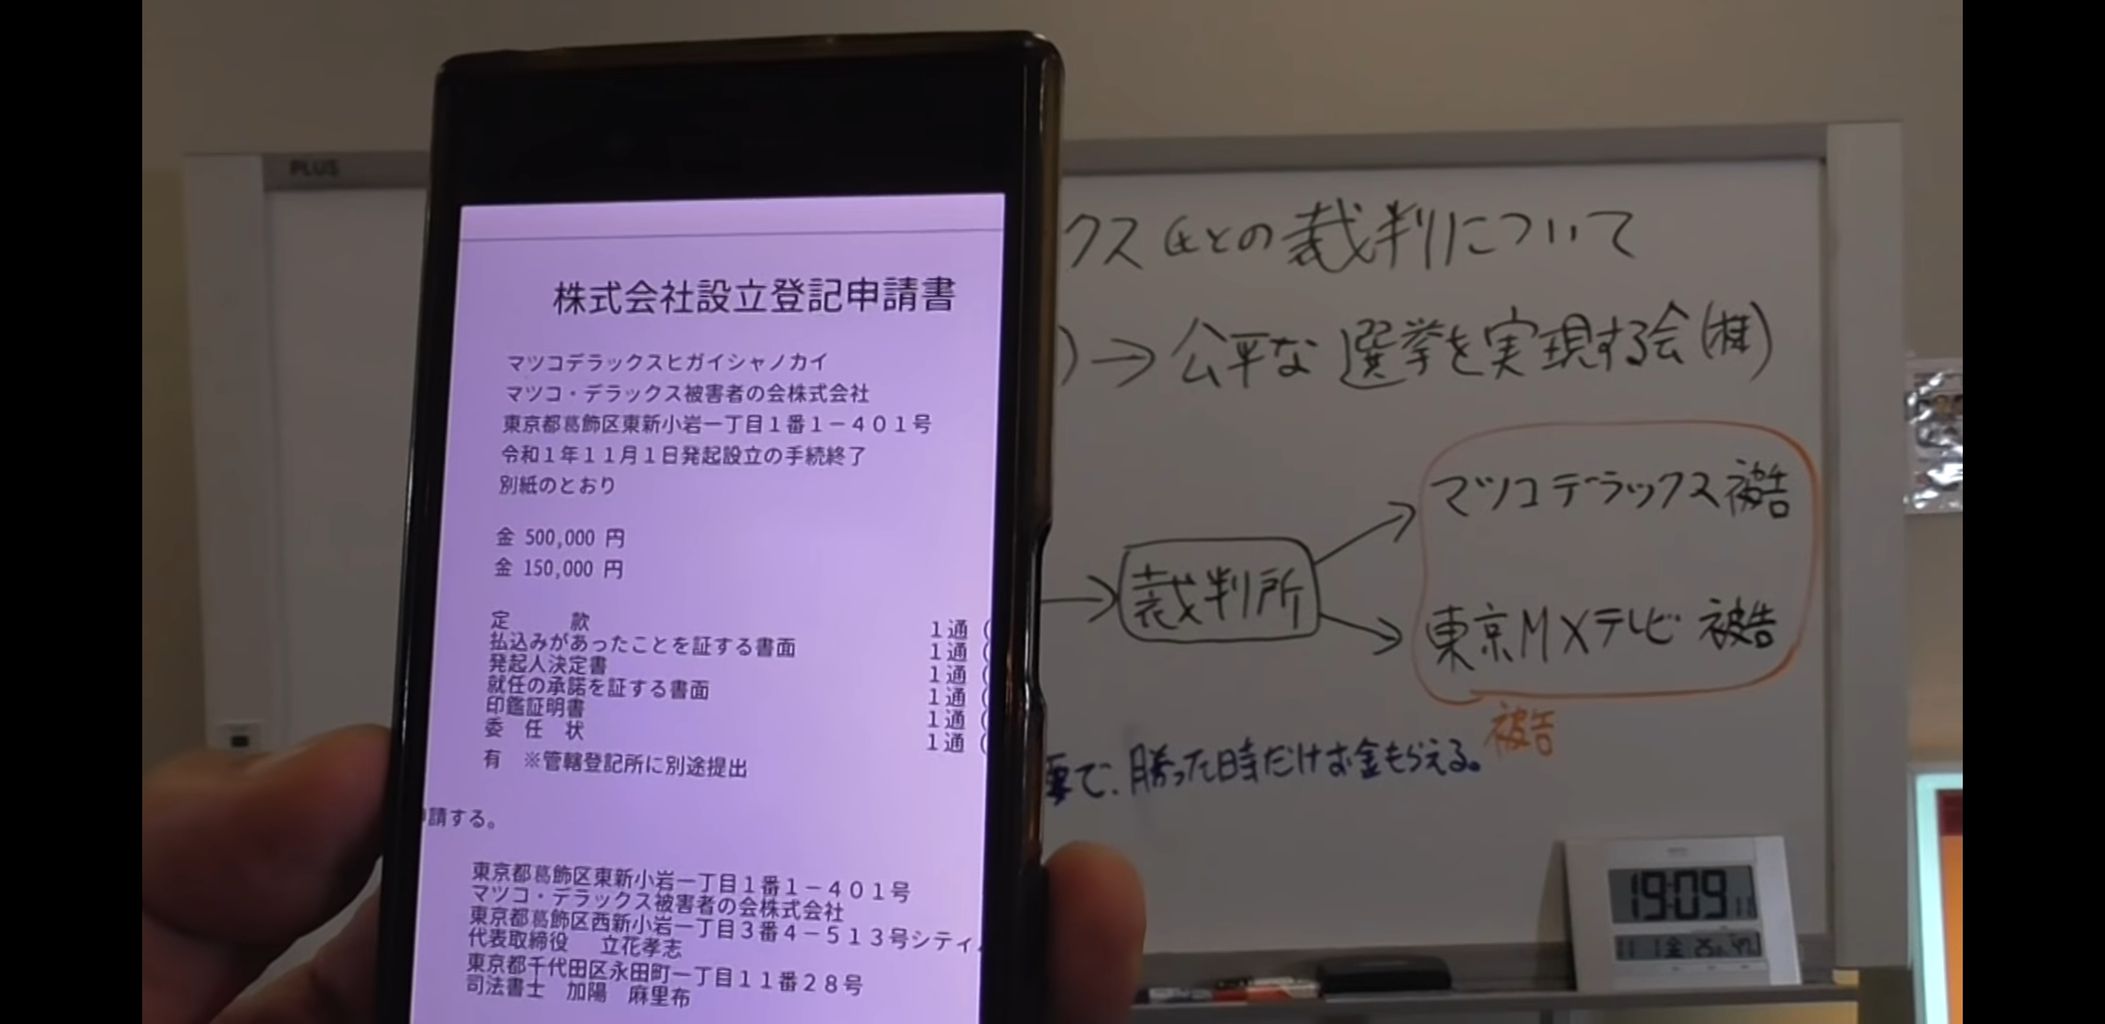 PLUS
株式会社設立登記申請書
マツコデラックスヒガイシャノカイ
マツコ・デラックス被害者の会株式会社
東京都葛飾区東新小岩一丁目1番1-401号
令和1年11月1日発起設立の手続終了
別紙のとおり
金 500,000 円
金 150,000 円
定 款 1通(
払込みがあったことを証する書面 1通(
発起人決定書 1通(
就任の承諾を証する書面 1通(
印鑑証明書 1通(
委 任 状 1通(
有 ※管轄登記所に別途提出
請する。
東京都葛飾区東新小岩一丁目1番1-401号
マツコ・デラックス被害者の会株式会社
東京都葛飾区西新小岩一丁目3番4-513号シティ
代表取締役 立花孝志
東京都千代田区永田町一丁目11番28号
司法書士 加陽 麻里布
クス氏との裁判について
)→公平な選挙を実現する会(株)
マツコデラックス被告
裁判所
東京MXテレビ 被告
被告
で、勝った時だけお金もらえる。
19:09